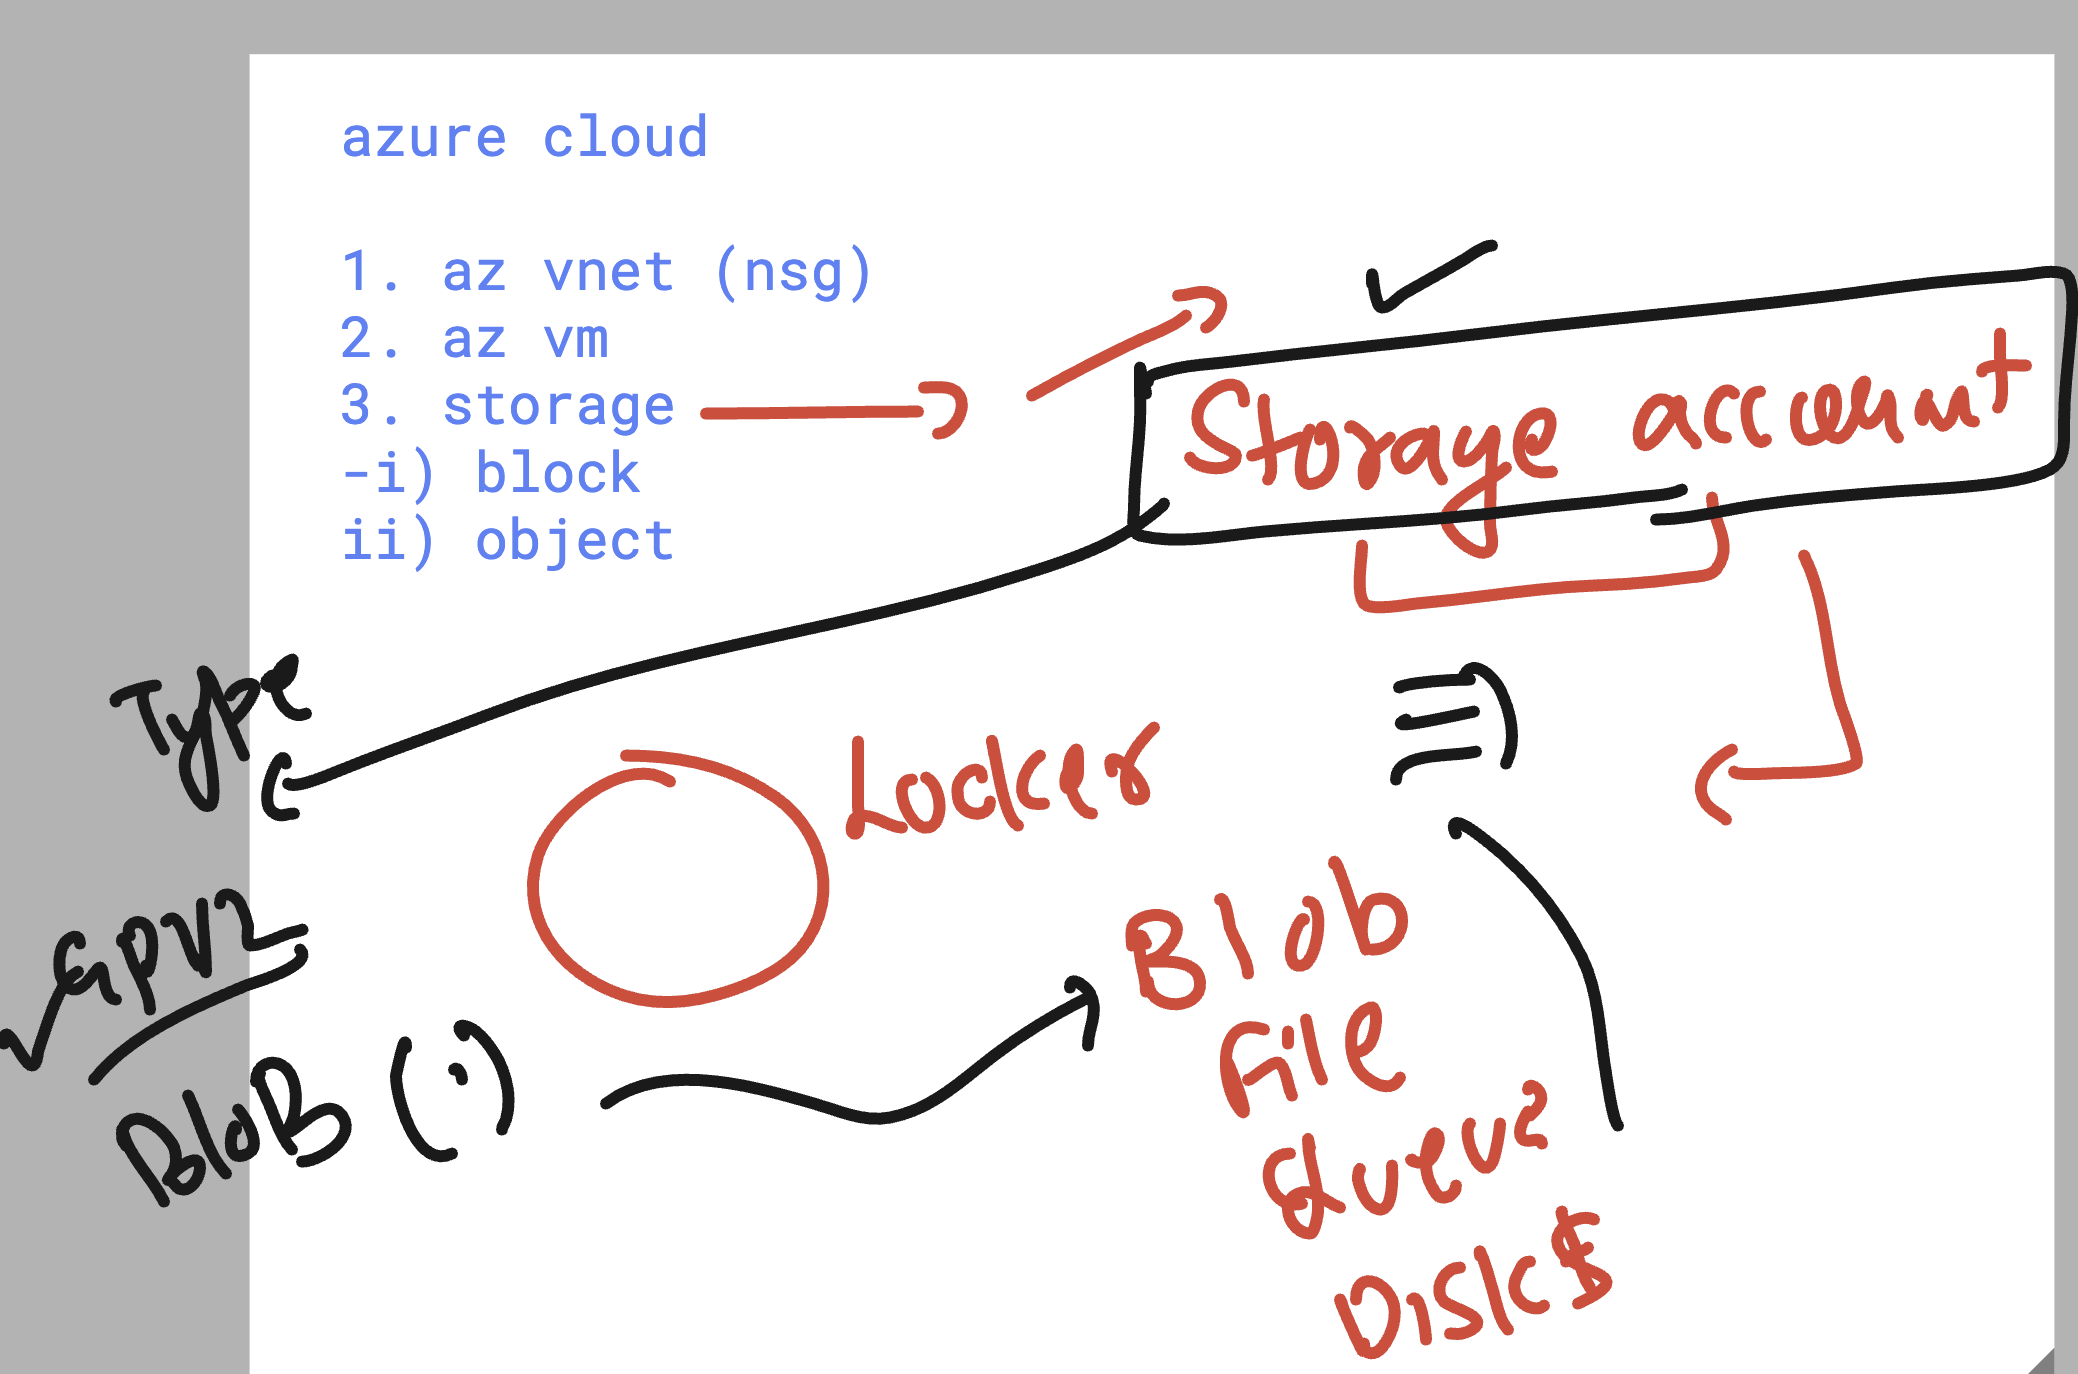 azure cloud
1. az vnet (nsg)
2. az vm
3. storage
-i) block
ii) object
Storage account
Type
Locker
GPV2
BloB (
Blob
File
Queue
Disks